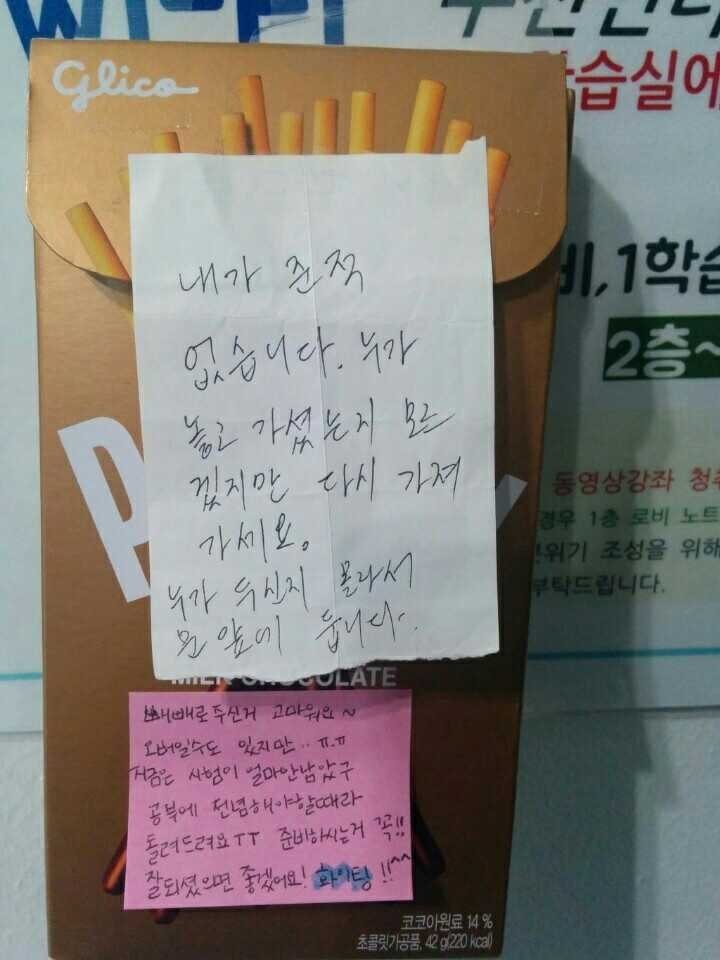 Glico
습실에
비,1학습
2층~
동영상강좌 청취
경우 1층 로비 노트
분위기 조성을 위해
부탁드립니다.
내가 준적
없습니다. 누가
놓고 가셨는지 모르
겠지만 다시 가져
가세요.
누가 두신지 몰라서
문 앞에 둡니다.
MILK CHOCOLATE
빼빼로주신거 고마워요~
오버일수도 있지만..ㅠ.ㅠ
지금은 시험이 얼마안남았구
공부에 전념해야할때라
돌려드려요TT 준비하시는거 꼭!!
잘되셨으면 좋겠어요! 화이팅!!^^
코코아원료 14 %
초콜릿가공품, 42 g(220 kcal)